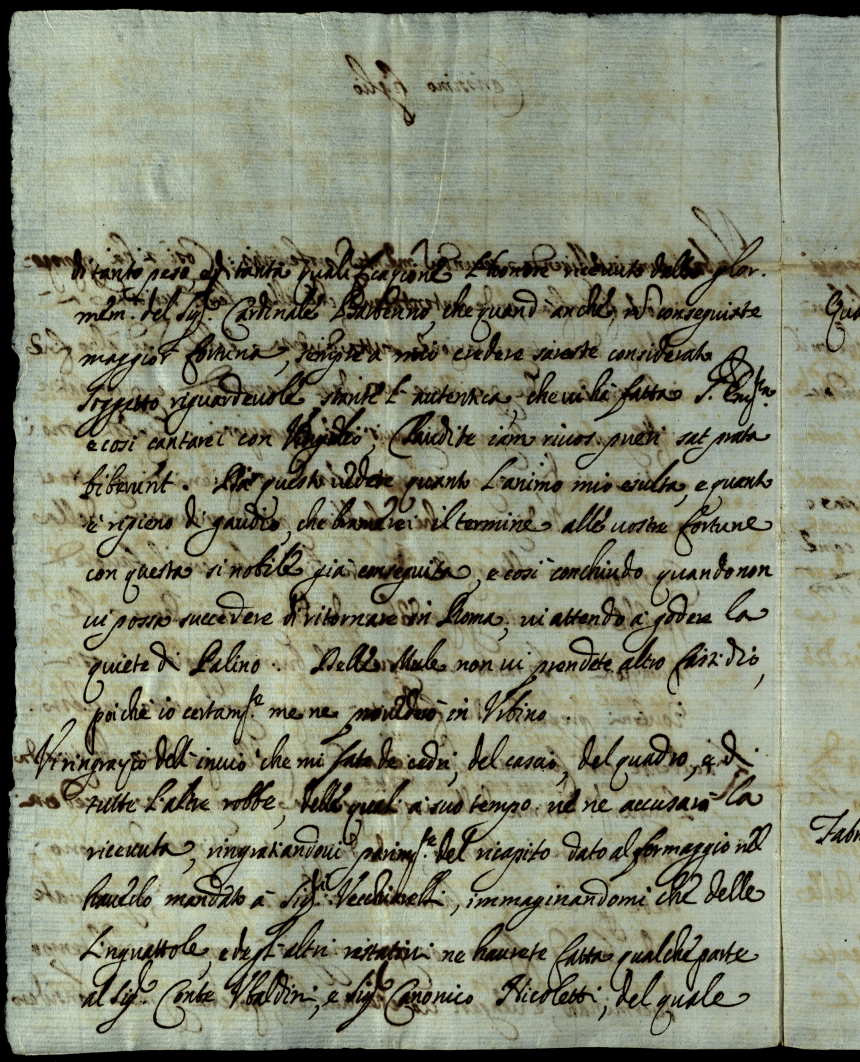 di tanto peso, e di tanta qualificatione l'honore ricevuto dalla glor.
mem. del Sig.r Cardinale Barberino, che quand' anche non conseguiste
maggior fortuna, sempre à mio credere sareste considerato
soggetto riguardevole stante l'autentica, che vi hà fatta S. Em.za
e così cantarei con Virgilio; Claudite iam rivos pueri sat prata
biberunt. Da questo vedete quanto l'animo mio esulta, e quanto
è ripieno di gaudio, che bramerei il termine alle vostre fortune
con questa si nobile già conseguita, e così conchiudo quando non
vi possa succedere di ritornare in Roma, vi attendo à godere la
quiete di Palino. Delle Mule non vi prendete altro fastidio,
poiche io certam.te me ne provederò in Urbino
Vi ringratio dell' invio che mi fate de cedri, del cascio, del quadro, e di
tutte l'altre robbe, delle quali a suo tempo ve ne accusarò la
ricevuta, ringratiandovi parim.te del ricapito dato al formaggio nel
haverlo mandato à Sig.ri Vecchiarelli, immaginandomi che delle
Linguattole, e degl' altri ne haverete fatta qualche parte
al Sig.r Conte Ubaldini, e Sig.r Canonico Nicoletti, del quale